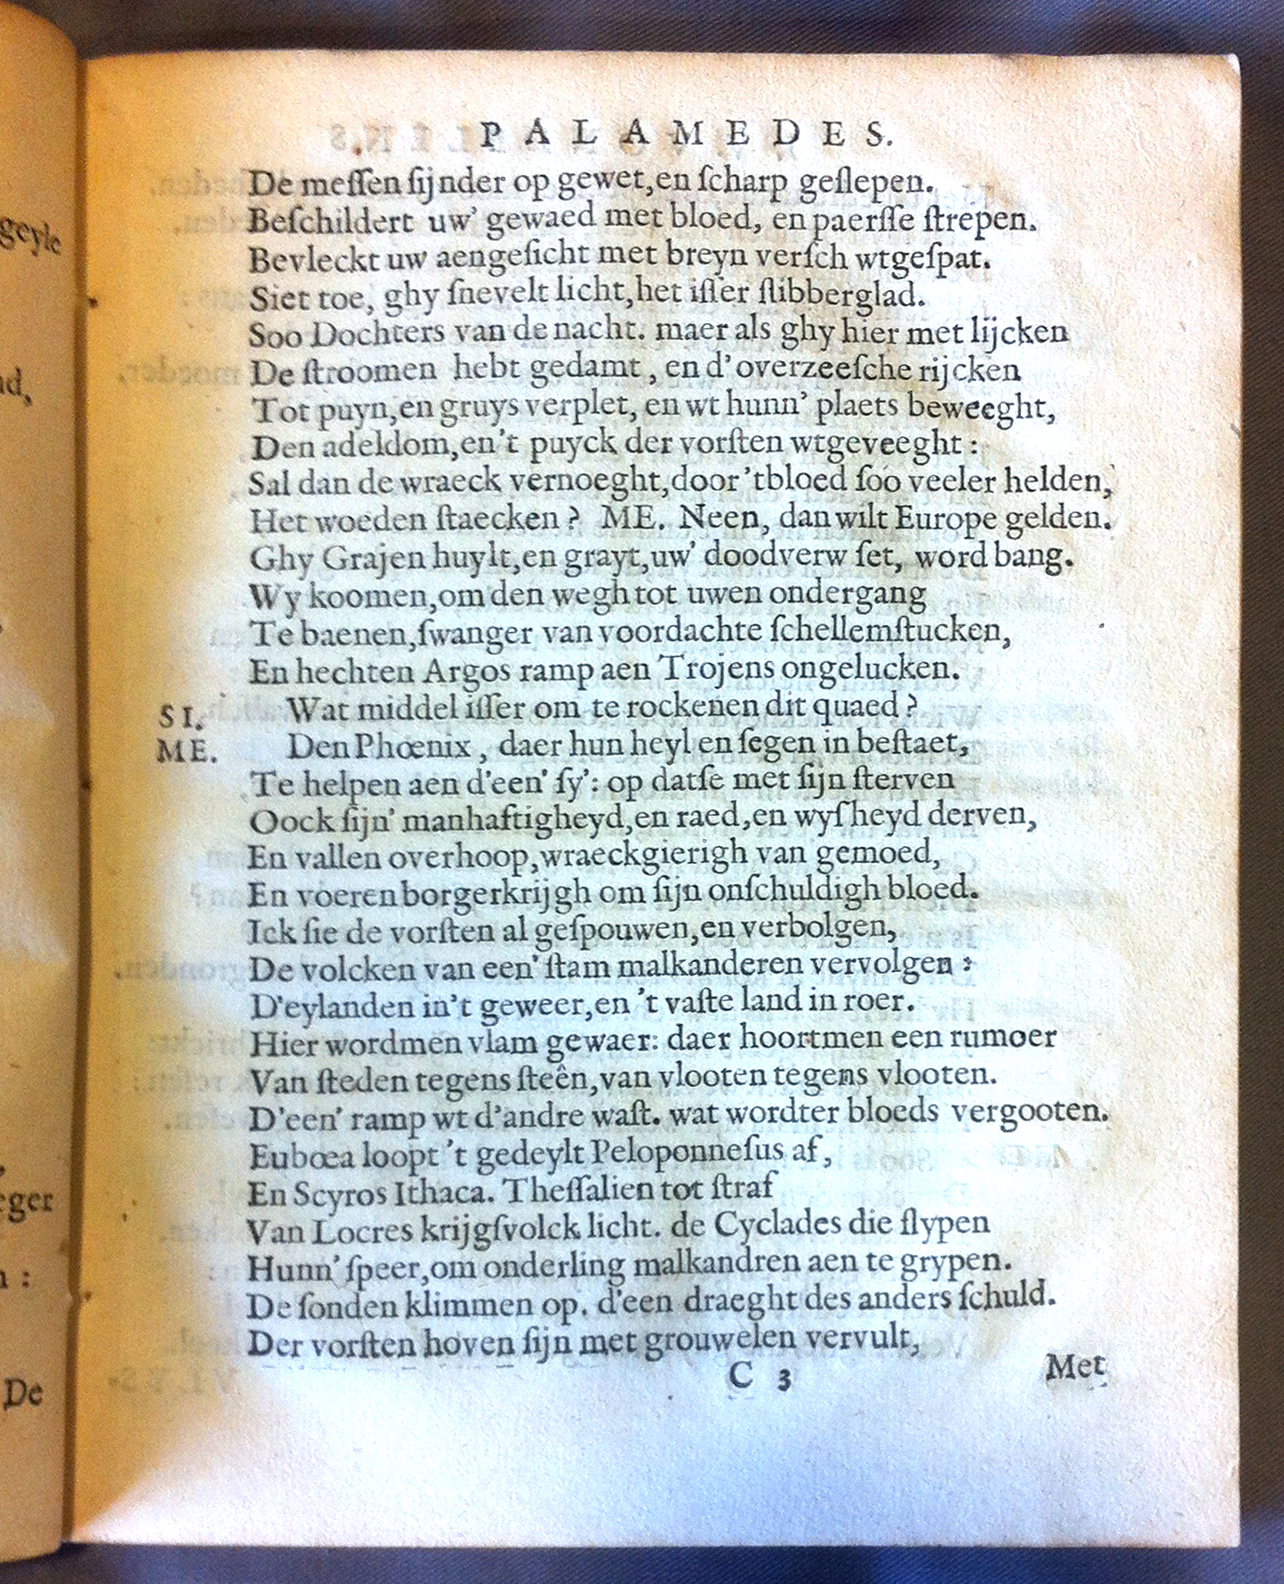 geyle
nd,
eger
n :
De
PALAMEDES.
De meſſen ſijnder op gewet,en ſcharp geſlepen.
Beſchildert uw' gewaed met bloed, en paerſſe ſtrepen.
Bevleckt uw aengeſicht met breyn verſch wtgeſpat.
Siet toe, ghy ſnevelt licht,het iſſer ſlibberglad.
Soo Dochters van de nacht. maer als ghy hier met lijcken
De ſtroomen hebt gedamt, en d'overzeeſche rijcken
Tot puyn,en gruys verplet, en wt hunn' plaets beweeght,
Den adeldom,en't puyck der vorſten wtgeveeght :
Sal dan de wraeck vernoeght,door 'tbloed ſoo veeler helden,
Het woeden ſtaecken? ME. Neen, dan wilt Europe gelden.
Ghy Grajen huylt,en grayt,uw' doodverw ſet, word bang.
Wy koomen,om den wegh tot uwen ondergang
Te baenen,ſwanger van voordachte ſchellemſtucken,
En hechten Argos ramp aen Trojens ongelucken.
SI. Wat middel iſſer om te rockenen dit quaed?
ME. Den Phœnix, daer hun heyl en ſegen in beſtaet,
Te helpen aen d'een' ſy': op datſe met ſijn ſterven
Oock ſijn' manhaftigheyd,en raed,en wyſheyd derven,
En vallen overhoop,wraeckgierigh van gemoed,
En voeren borgerkrijgh om ſijn onſchuldigh bloed.
Ick ſie de vorſten al geſpouwen,en verbolgen,
De volcken van een' ſtam malkanderen vervolgen :
D'eylanden in't geweer,en 't vaſte land in roer.
Hier wordmen vlam gewaer: daer hoortmen een rumoer
Van ſteden tegens ſteên,van vlooten tegens vlooten.
D'een' ramp wt d'andre waſt. wat wordter bloeds vergooten.
Eubœa loopt 't gedeylt Peloponneſus af,
En Scyros Ithaca. Theſſalien tot ſtraf
Van Locres krijgſvolck licht. de Cyclades die ſlypen
Hunn' ſpeer,om onderling malkandren aen te grypen.
De ſonden klimmen op. d'een draeght des anders ſchuld.
Der vorſten hoven ſijn met grouwelen vervult,
C 3 Met